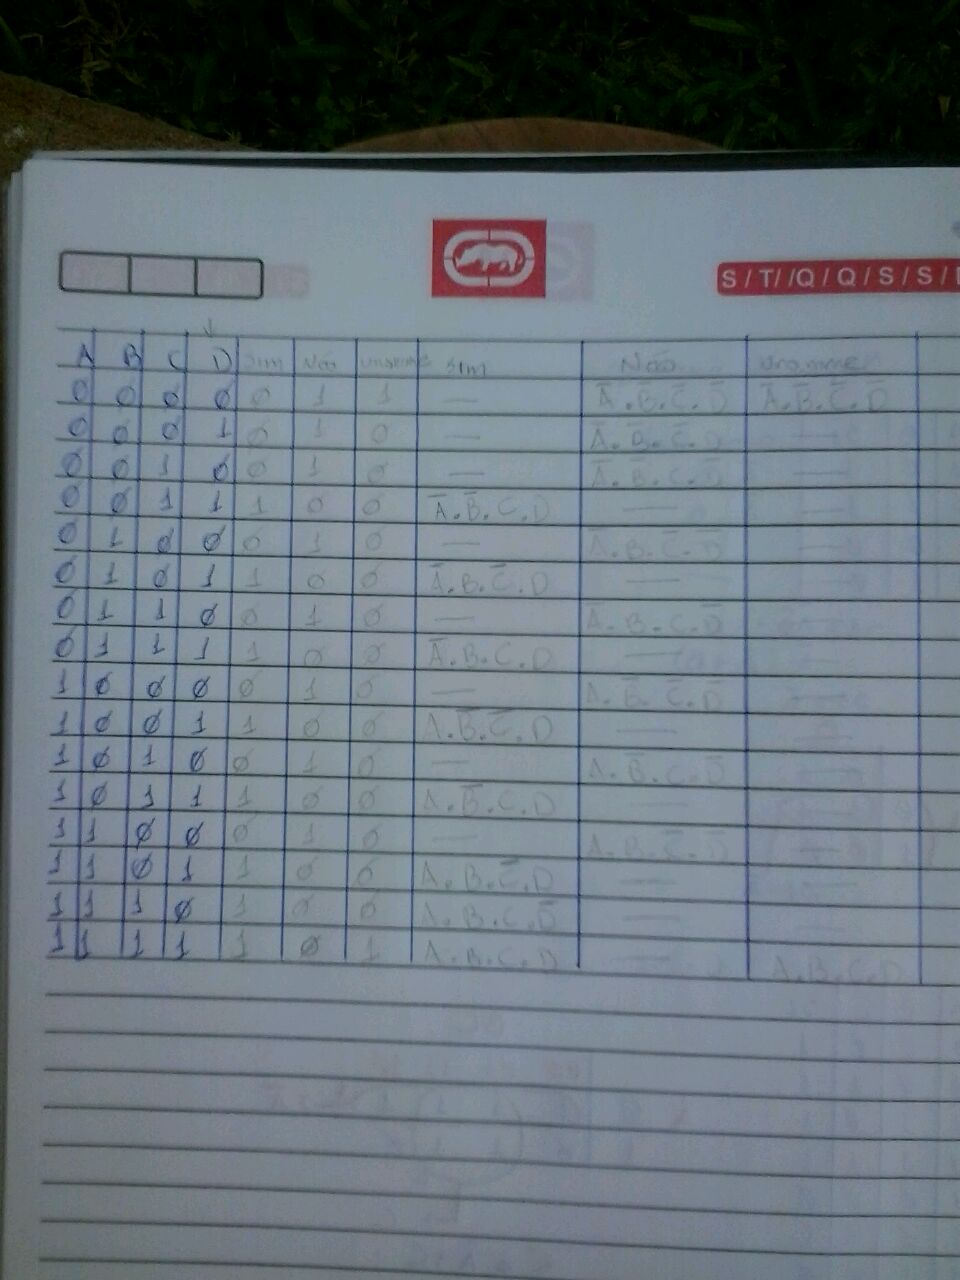 S / T / /Q / Q / S / S /
A B C D Sim Não unanime Sim Não unanime
0 0 0 0 0 1 1 — A̅.B̅.C̅.D̅ A̅.B̅.C̅.D̅
0 0 0 1 0 1 0 — A̅.B̅.C̅.D —
0 0 1 0 0 1 0 — A̅.B̅.C.D̅ —
0 0 1 1 1 0 0 A̅.B̅.C.D — —
0 1 0 0 0 1 0 — A̅.B.C̅.D̅ —
0 1 0 1 1 0 0 A̅.B.C̅.D — —
0 1 1 0 0 1 0 — A̅.B.C.D̅ —
0 1 1 1 1 0 0 A̅.B.C.D — —
1 0 0 0 0 1 0 — A.B̅.C̅.D̅ —
1 0 0 1 1 0 0 A.B̅.C̅.D — —
1 0 1 0 0 1 0 — A.B̅.C.D̅ —
1 0 1 1 1 0 0 A.B̅.C.D — —
1 1 0 0 0 1 0 — A.B.C̅.D̅ —
1 1 0 1 1 0 0 A.B.C̅.D — —
1 1 1 0 1 0 0 A.B.C.D̅ — —
1 1 1 1 1 0 1 A.B.C.D — A.B.C.D